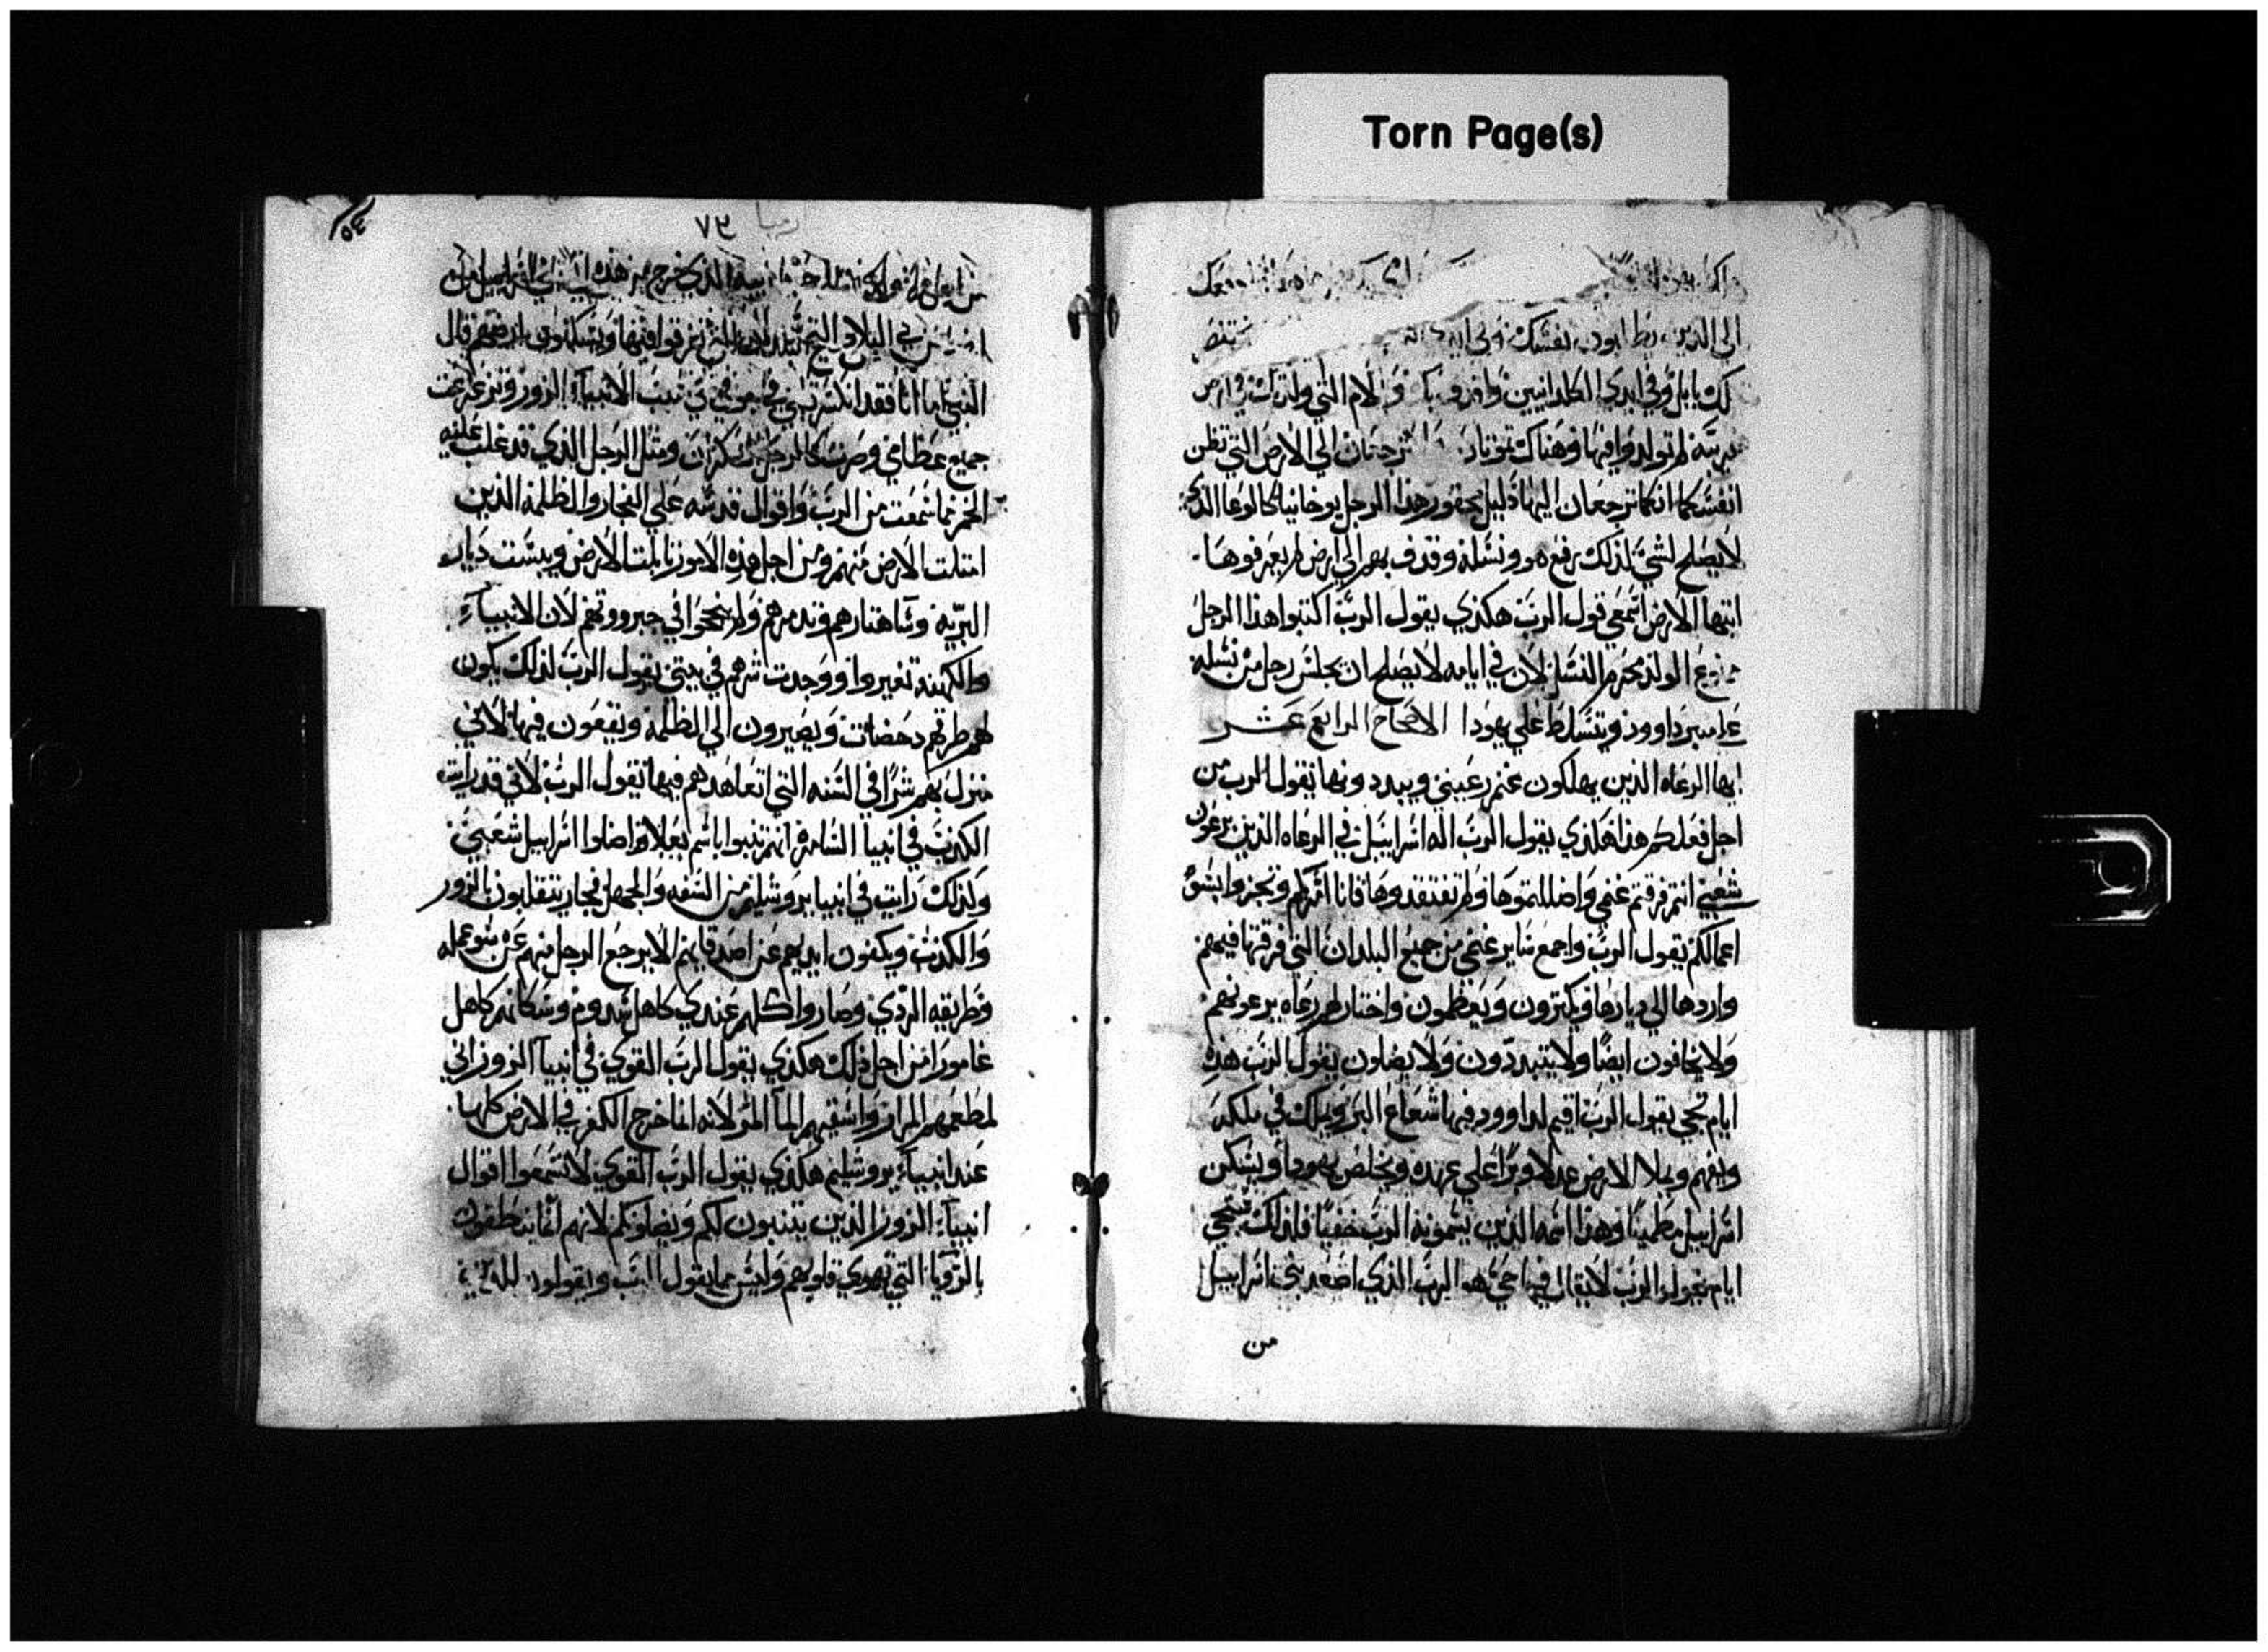 Torn Page(s)
الي الذين نفسك
لك بابل وفي ايدي الكلدانيين وللام التي ولدتك في ارض
غريبة لم تولدوا فيها وهناك تموتان ترجعان الي الارض التي تظن
انفسكما انكما ترجعان اليها ذليل محقور هذا الرجل يوخانيا كالوعا الذي
لا يصلح لشي لذلك رفع هو ونسله وقذف بهم الي ارض لم يعرفوها
ايتها الارض اسمعي قول الرب هكذي يقول الرب اكتبوا هذا الرجل
الولد محرم النسل لان في ايامه لا يصلح ان يجلس رجل من نسله
علي منبر داوود ويتسلط علي يهودا الاصحاح الرابع عشر
ايها الرعاه الذين يهلكون غنم رعيتي ويبددونها يقول الرب من
اجل فعلكم هذا هكذي يقول الرب اله اسراييل في الرعاه الذين يرعون
شعبي انتم فرقتم غنمي واضللتموها ولم تفتقدوها فانا امركم وتجزوا بسو
اعمالكم يقول الرب واجمع ساير غنمي من جميع البلدان التي فرقتها فيهم
واردها الي ديارها ويكثرون ويعظمون واختار لهم رعاه يرعونهم
ولا يخافون ايضا ولا يتبددون ولا يضلون يقول الرب هذه
ايام تجي يقول الرب اقيم لداوود فيها شعاع البر ويملك في ملكه
ويفهم ويملا الارض عدلا وبرا علي عهده ويخلص يهودا ويسكن
اسراييل مطمينا وهذا اسمه الذين يسمونه الرب خفيا فلذلك ستجي
ايام يقول الرب لا يقال فيها حي هو الرب الذي اصعد بني اسراييل
من
٧٣
١٥٤
في البلاد التي فرقوا فيها ويسكنون بارضهم قال
النبي اما انا فقد انكسر قلبي في جوفي في سبب الانبياء الزور وتزعزعت
جميع عظامي وصرت كالرجل سكران ومثل الرجل الذي قد غلب عليه
الخمر مما سمعت من الرب واقوال قدسه علي الفجار والظلمه الذين
امتلت الارض منهم ومن اجل هذه الامور تابلت الارض ويبست ديار
البريه وساهتارهم وتدمرهم ولم ينجحوا في جبروتهم لان الانبياء
والكهنه تغيروا ووجدت شرهم في بيتي يقول الرب لذلك يكون
لهم طرقهم دحضات ويصيرون الي الظلمه ويقعون فيها لاني
منزل بهم شرا في السنه التي اتعاهدهم فيها يقول الرب لاني قد رايت
الكذب في انبيا السامره انهم تنبوا باسم بعلا واضلوا اسراييل شعبي
ولذلك رايت في انبيا يروشليم من السفه والجهل فجار يتقلبون بالزور
والكذب ويكفون ايديهم عن اصدقايهم الا يرجع الرجل منهم عن سو عمله
وطريقه الردي وصاروا كلهم عندي كاهل سدوم وسكانهم كاهل
غامورا من اجل ذلك هكذي يقول الرب القوي في انبياء الزور اني
لمطعمهم المرار واسقيهم الما المر لانه انما خرج الكفر في الارض كلها
عند انبياء يروشليم هكذي يقول الرب القوي لا تسمعوا اقوال
انبياء الزور الذين يتنبون لكم ويضلونكم لانهم انما ينطقون
بالرويا التي تهوي قلوبهم وليس مما يقول الرب ويقولون